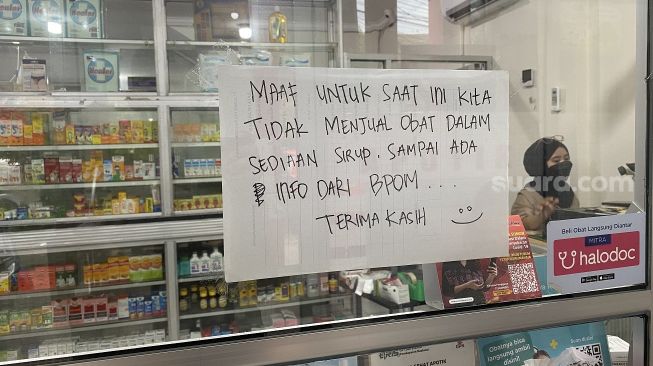 MAAF UNTUK SAAT INI KITA
TIDAK MENJUAL OBAT DALAM
SEDIAAN SIRUP. SAMPAI ADA
INFO DARI BPOM...
TERIMA KASIH
suara.com
Beli Obat Langsung Diantar
MITRA
halodoc
Obatnya bisa
ambil
disini